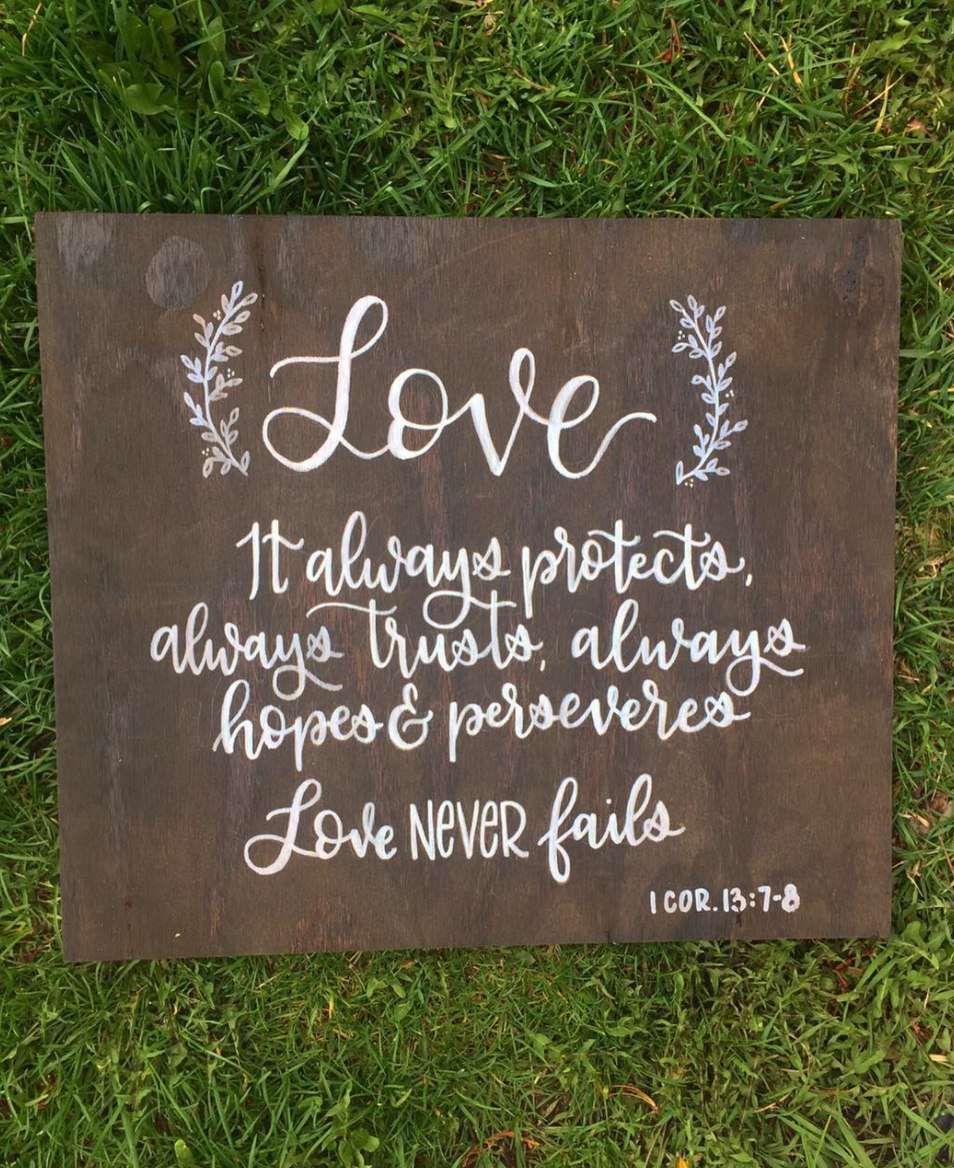 Love
It always protects,
always trusts, always
hopes & perseveres
Love NEVER fails
1 COR. 13:7-8